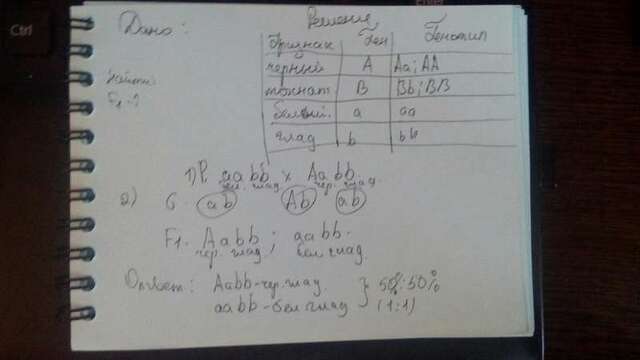 Ctrl
Дано:
Решение
Признак Ген Генотип
черный A Aa; AA
мохнат B Bb; BB
белый. a aa
глад b bb
Найти:
F1-?
1) P. aabb x Aabb
бел. глад. чер. глад.
2) G. ab Ab ab
F1. Aabb ; aabb.
чер. глад бел глад.
Ответ: Aabb-чер.глад } 50%:50%
aabb-бел глад (1:1)